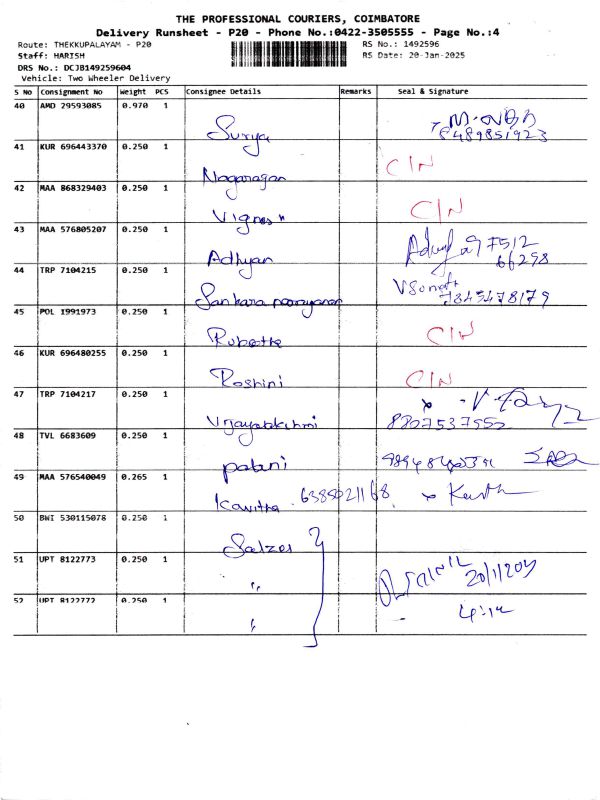 THE PROFESSIONAL COURIERS, COIMBATORE
Delivery Runsheet - P20 - Phone No.:0422-3505555 - Page No.:4
Route: THEKKUPALAYAM - P20 RS No.: 1492596
Staff: HARISH RS Date: 20-Jan-2025
DRS No.: DCJB149259604
Vehicle: Two Wheeler Delivery
S No Consignment No Weight PCS Consignee Details Remarks Seal & Signature
40 AMD 29593085 0.970 1 Surya
41 KUR 696443370 0.250 1 Nagaragan CIN
42 MAA 868329403 0.250 1 Vignesh CIN
43 MAA 576805207 0.250 1 Adhyan 97512
66298
44 TRP 7104215 0.250 1 Sankara noorayanan
45 POL 1991973 0.250 1 CIN
46 KUR 696480255 0.250 1 Roshini CIN
47 TRP 7104217 0.250 1 Vijayalakshmi
48 TVL 6683609 0.250 1 palani
49 MAA 576540049 0.265 1 Kavitha 6385021168
50 BWI 530115078 0.250 1 Salzer
51 UPT 8122773 0.250 1 "
52 UPT 8122772 0.250 1 "